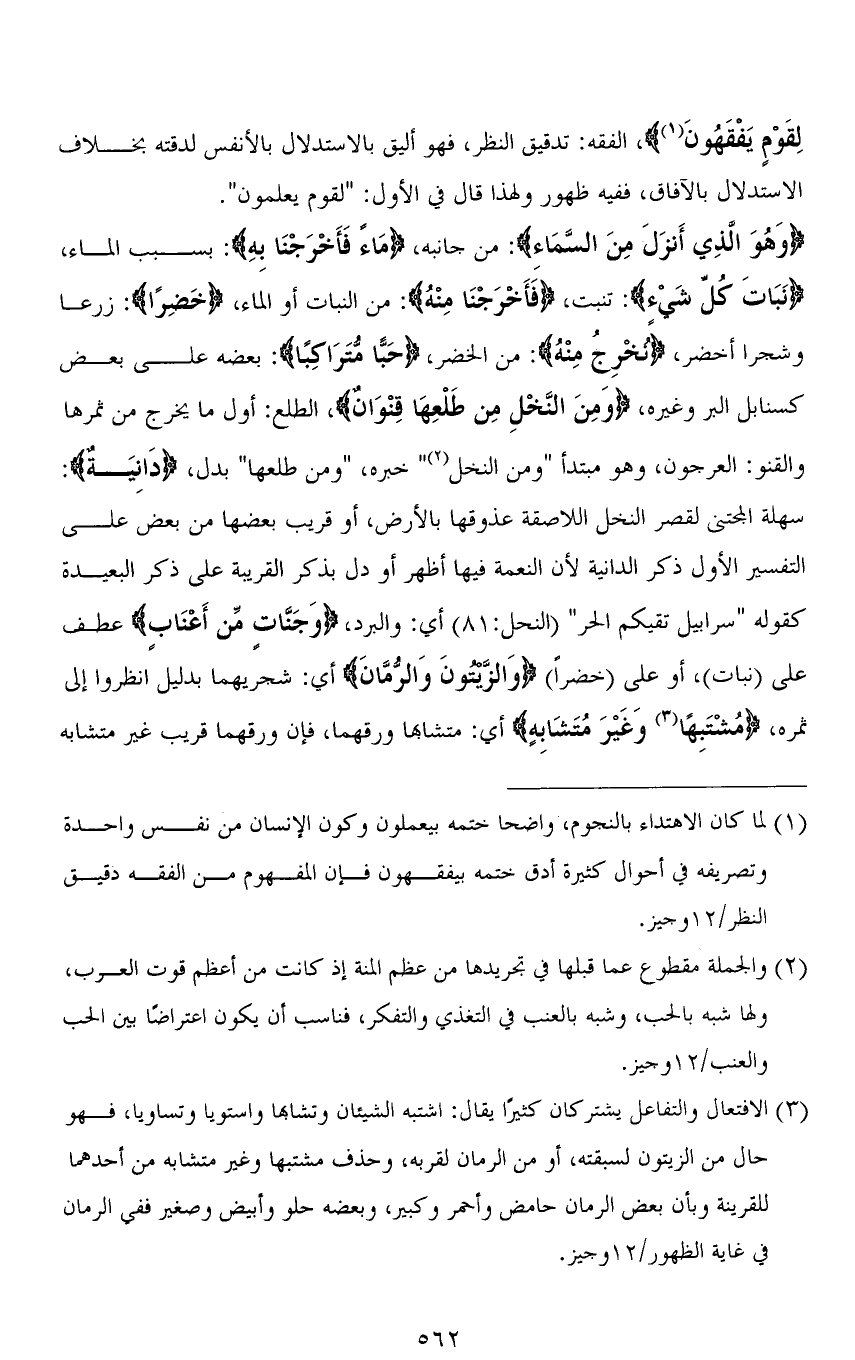 لِقَوْمٍ يَفْقَهُونَ(١)﴾، الفقه: تدقيق النظر، فهو أليق بالاستدلال بالأنفس لدقته بخلاف
الاستدلال بالآفاق، ففيه ظهور ولهذا قال في الأول: "لقوم يعلمون".
﴿وَهُوَ الَّذِي أَنزَلَ مِنَ السَّمَاءِ﴾: من جانبه، ﴿مَاءً فَأَخْرَجْنَا بِهِ﴾: بسبب الماء،
﴿نَبَاتَ كُلِّ شَيْءٍ﴾: تنبت، ﴿فَأَخْرَجْنَا مِنْهُ﴾: من النبات أو الماء، ﴿خَضِرًا﴾: زرعا
وشجرا أخضر، ﴿نُخْرِجُ مِنْهُ﴾: من الخضر، ﴿حَبًّا مُّتَرَاكِبًا﴾: بعضه على بعض
كسنابل البر وغيره، ﴿وَمِنَ النَّخْلِ مِن طَلْعِهَا قِنْوَانٌ﴾، الطلع: أول ما يخرج من ثمرها
والقنو: العرجون، وهو مبتدأ "ومن النخل(٢)" خبره، "ومن طلعها" بدل، ﴿دَانِيَةٌ﴾:
سهلة المجتنى لقصر النخل اللاصقة عذوقها بالأرض، أو قريب بعضها من بعض على
التفسير الأول ذكر الدانية لأن النعمة فيها أظهر أو دل بذكر القريبة على ذكر البعيدة
كقوله "سرابيل تقيكم الحر" (النحل:٨١) أي: والبرد، ﴿وَجَنَّاتٍ مِّنْ أَعْنَابٍ﴾ عطف
على (نبات)، أو على (خضراً) ﴿وَالزَّيْتُونَ وَالرُّمَّانَ﴾ أي: شجريهما بدليل انظروا إلى
ثمره، ﴿مُشْتَبِهًا(٣) وَغَيْرَ مُتَشَابِهٍ﴾ أي: متشابها ورقهما، فإن ورقهما قريب غير متشابه
(١) لما كان الاهتداء بالنجوم، واضحا ختمه بيعملون وكون الإنسان من نفس واحدة
وتصريفه في أحوال كثيرة أدق ختمه بيفقهون فإن المفهوم من الفقه دقيق
النظر/١٢وجيز.
(٢) والجملة مقطوع عما قبلها في تجريدها من عظم المنة إذ كانت من أعظم قوت العرب،
ولها شبه بالحب، وشبه بالعنب في التغذي والتفكر، فناسب أن يكون اعتراضًا بين الحب
والعنب/١٢وجيز.
(٣) الافتعال والتفاعل يشتركان كثيرًا يقال: اشتبه الشيئان وتشابها واستويا وتساويا، فهو
حال من الزيتون لسبقته، أو من الرمان لقربه، وحذف مشتبها وغير متشابه من أحدهما
للقرينة وبأن بعض الرمان حامض وأحمر وكبير، وبعضه حلو وأبيض وصغير ففي الرمان
في غاية الظهور/١٢وجيز.
٥٦٢